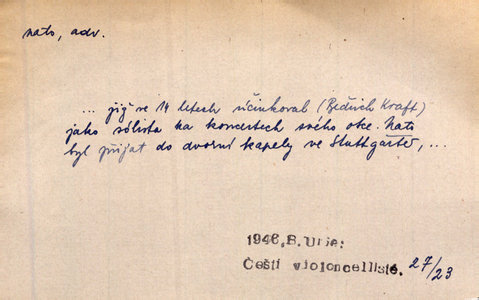 nato, adv.
... již ve 14 letech účinkoval (Bedřich Kraft)
jako sólista na koncertech svého otce. Nato
byl přijat do dvorní kapely ve Stuttgartě, ...
1946, B. Urie:
Čeští violoncellisté. 27/23